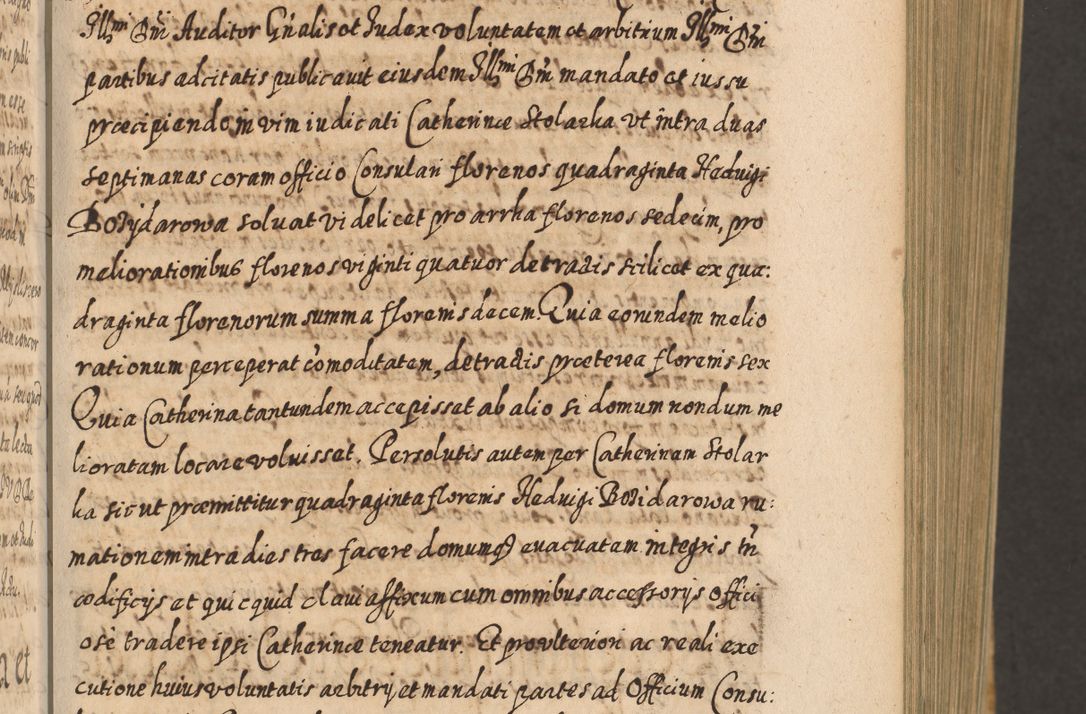 Illmi Dni Auditor Gnalis et Judex voluntatem et arbitrium Illmi Dni
partibus adcitatis publicavit eiusdem Illmi Dni mandato et iussu
præcipiendo in vim iudicati Catherinæ Stolarka vt intra duas
septimanas coram officio Consulari florenos quadraginta Heduigi
Bosydarowa soluat videlicet pro arrha florenos sedecim, pro
meliorationibus florenos viginti quatuor detractis scilicet ex qua:
draginta florenorum summa florenis decem. Quia eorundem melio
rationum perceperat comoditatem, detractis præterea florenis sex
Quia Catherina tantundem accepisset ab alio si domum nondum me
lioratam locare voluisset. Persolutis autem per Catherinam Stolar
ka sicut præmittitur quadraginta florenis Heduigi Bosidarowa ru:
mationem intra dies tres facere domumq3 evacuatam integris in
ædificijs et quicquid claui affixum cum omnibus accessorijs offici
ose tradere ipsi Catherinæ teneatur. Et pro vlteriori ac reali exe
cutione huius voluntatis arbitrij et mandati partes ad Officium Consu: